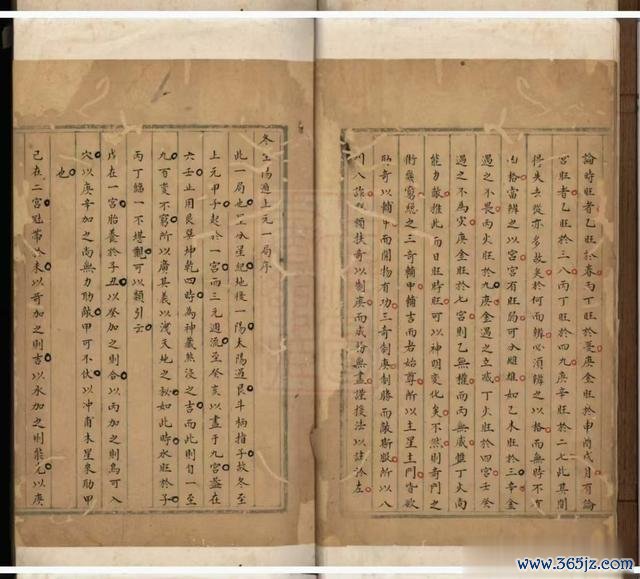 論時旺者乙旺於春丙丁旺於夏庚金旺於申酉戌月有論
宮旺者乙旺於三八丙丁旺於四九庚辛旺於二七此其間
得失去從亦多故矣於何而辨心須辨之以格而無時不可
凶格當辨之以宮宮有旺弱可分雌雄如乙木旺於三辛金
遇之不畏丙火旺於九庚金遇之立滅丁火旺於四宮壬癸
遇之不為灾庚金旺於七宮則乙無權而丙無威惟丁火尚
能力敵推此而日旺時旺可以神明变化矣不然則奇門之
術窮總之三奇輔甲輔吉而者始尊所以主星主門皆欲
助奇以輔甲而開物有功三奇制庚制勝而敵斯服所以八
門八詐必須扶奇以制庚而成務無盡謹援法以詁於左
冬至陽遁上元一局序
此一局也星紀地後一陽太陽過艮斗柄指子故冬至
上元甲子起於一宮而三元週流至癸亥以盡于九宮蓋在
六壬止用艮巽坤乾四時為神藏煞没之吉而此則自一至
九百变不窮所以廣其義以洩天地之秘如此時水旺於子
丙丁歸一不堪觀可以類引云
戊在一宮胎養於子丑以癸加之則合以丙加之則鳥可入
穴以庚辛加之尚無力助敵甲可不伏以冲甫木星來助甲
也
己在二宮冠帶於未以奇加之則吉以水加之則能克以庚
www.365jz.com